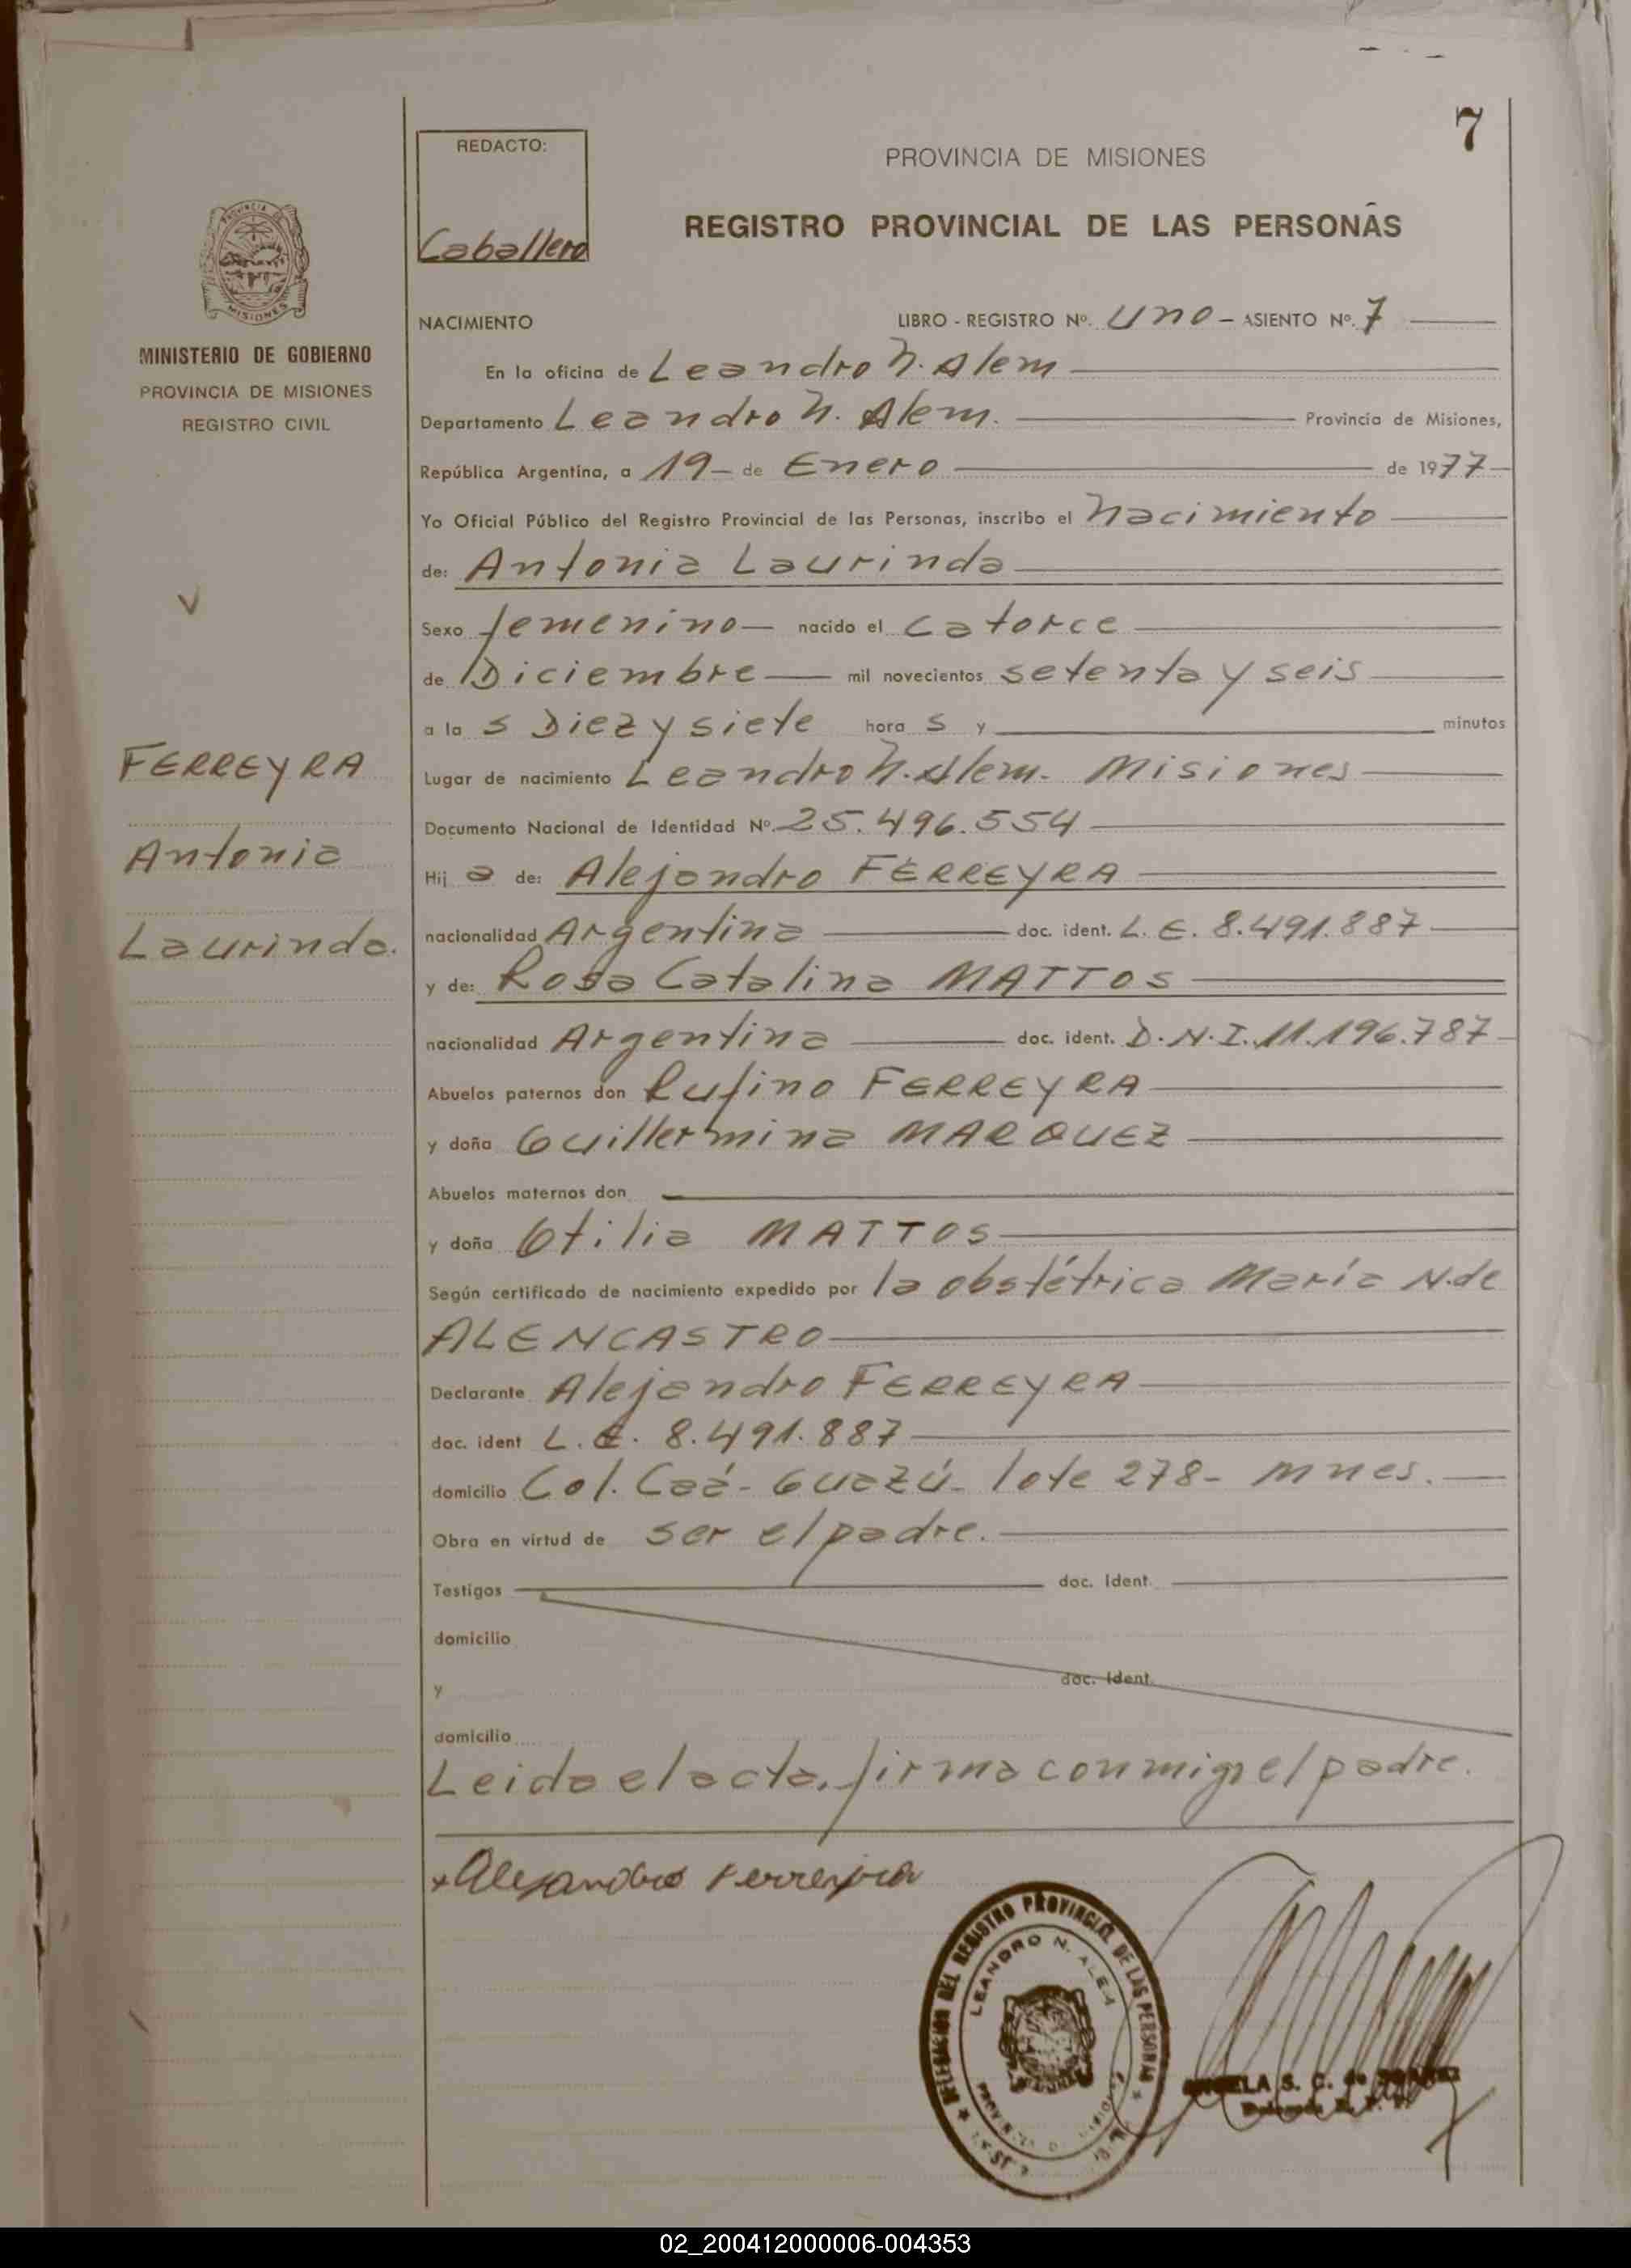 7
REDACTO:
Caballero
PROVINCIA DE MISIONES
REGISTRO PROVINCIAL DE LAS PERSONAS
MISIONES
MINISTERIO DE GOBIERNO
PROVINCIA DE MISIONES
REGISTRO CIVIL
FERREYRA
Antonia
Laurinda.
NACIMIENTO LIBRO - REGISTRO Nº. uno - ASIENTO Nº. 7
En la oficina de Leandro N. Alem
Departamento Leandro N. Alem. Provincia de Misiones,
República Argentina, a 19 - de Enero de 1977
Yo Oficial Público del Registro Provincial de las Personas, inscribo el Nacimiento
de: Antonia Laurinda
Sexo femenino nacido el Catorce
de Diciembre mil novecientos setenta y seis
a la s Diez y siete hora s y minutos
Lugar de nacimiento Leandro N. Alem. Misiones
Documento Nacional de Identidad Nº. 25.496.554
Hij a de: Alejandro FERREYRA
nacionalidad Argentina doc. ident. L. E. 8.491.887
y de: Rosa Catalina MATTOS
nacionalidad Argentina doc. ident. D.N.I. 11.196.787
Abuelos paternos don Rufino FERREYRA
y doña Guillermina MARQUEZ
Abuelos maternos don
y doña Otilia MATTOS
Según certificado de nacimiento expedido por la obstétrica María N. de
ALENCASTRO
Declarante Alejandro FERREYRA
doc. ident L. E. 8.491.887
domicilio Col. Caá-Guazú - lote 278 - Mnes.
Obra en virtud de ser el padre.
Testigos doc. Ident.
domicilio
y doc. Ident.
domicilio
Leida el acta, firma conmigo el padre.
Alejandro Ferreyra
DELEGACION DEL REGISTRO PROVINCIAL DE LAS PERSONAS
LEANDRO N. ALEM
S. C. de
02_200412000006-004353